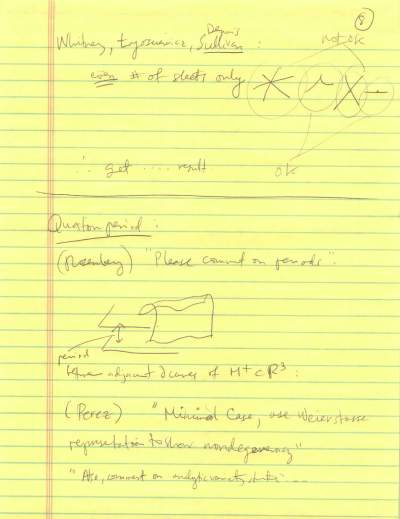 8
Dennis
Whitney, Sullivan :
not ok
even # of sheets only
ok
∴ get ..... result
Question period :
(Rosenberg) "Please comment on periods".
period
adjacent ∂ curves of M⊂R³ :
(Perez) "Minimal Case, use Weierstrass
representation to show nondegeneracy"
"Also, comment on analytic variety " ....